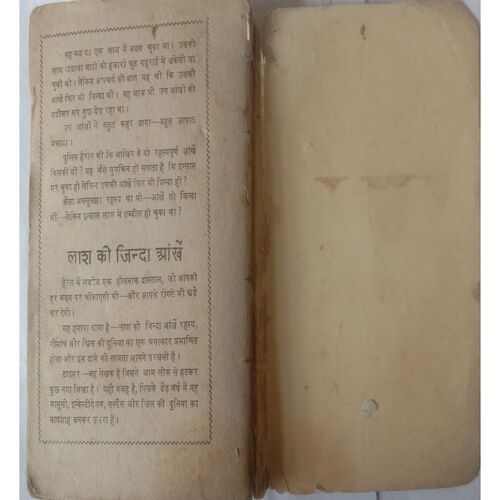 वह कब का एक लाश में बदल चुका था। उसकी
लाश अंधेली घाटी की हजारों फुट गहराई में धकेली जा
चुकी थी। लेकिन आश्चर्य की बात यह थी कि उसकी
आंखें फिर भी जिन्दा थीं। वह आज भी उन आंखों की
बदौलत सब कुछ देख रहा था।
उन आंखों ने बहुत कहर ढाया—बहुत उत्पात
मचाया।
पुलिस हैरान थी कि आखिर वे दो रहस्यपूर्ण आंखें
किसकी थीं? यह कैसे मुमकिन हो सकता है कि इन्सान
मर चुका हो लेकिन उसकी आंखें फिर भी जिन्दा हों?
कैसा अनसुलझा रहस्य था वो—आंखें तो जिन्दा
थीं—लेकिन इन्सान लाश में तब्दील हो चुका था?
लाश की जिन्दा आंखें
हैरत में लबरेज एक हौलनाक दास्तान, जो आपको
हर कदम पर चौंकाएगी भी—और आपके रोंगटे भी खड़े
कर देगी।
यह हमारा दावा है—लाश की जिन्दा आंखें रहस्य,
रोमांच और थ्रिल की दुनिया का एक चमत्कार प्रमाणित
होगा और इस दावे की सत्यता आपने परखनी है।
टाइगर—वह लेखक है जिसने आम लीक से हटकर
कुछ नया लिखा है। यही वजह है, पिछले डेढ़ वर्ष में वह
जासूसी, इन्वेस्टीगेशन, सस्पैंस और थ्रिल की दुनिया का
बादशाह बनकर उभरा है।